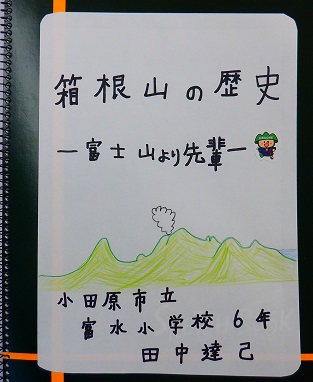 箱根山の歴史
―富士山より先輩―
小田原市立
富水小学校6年
田中達己